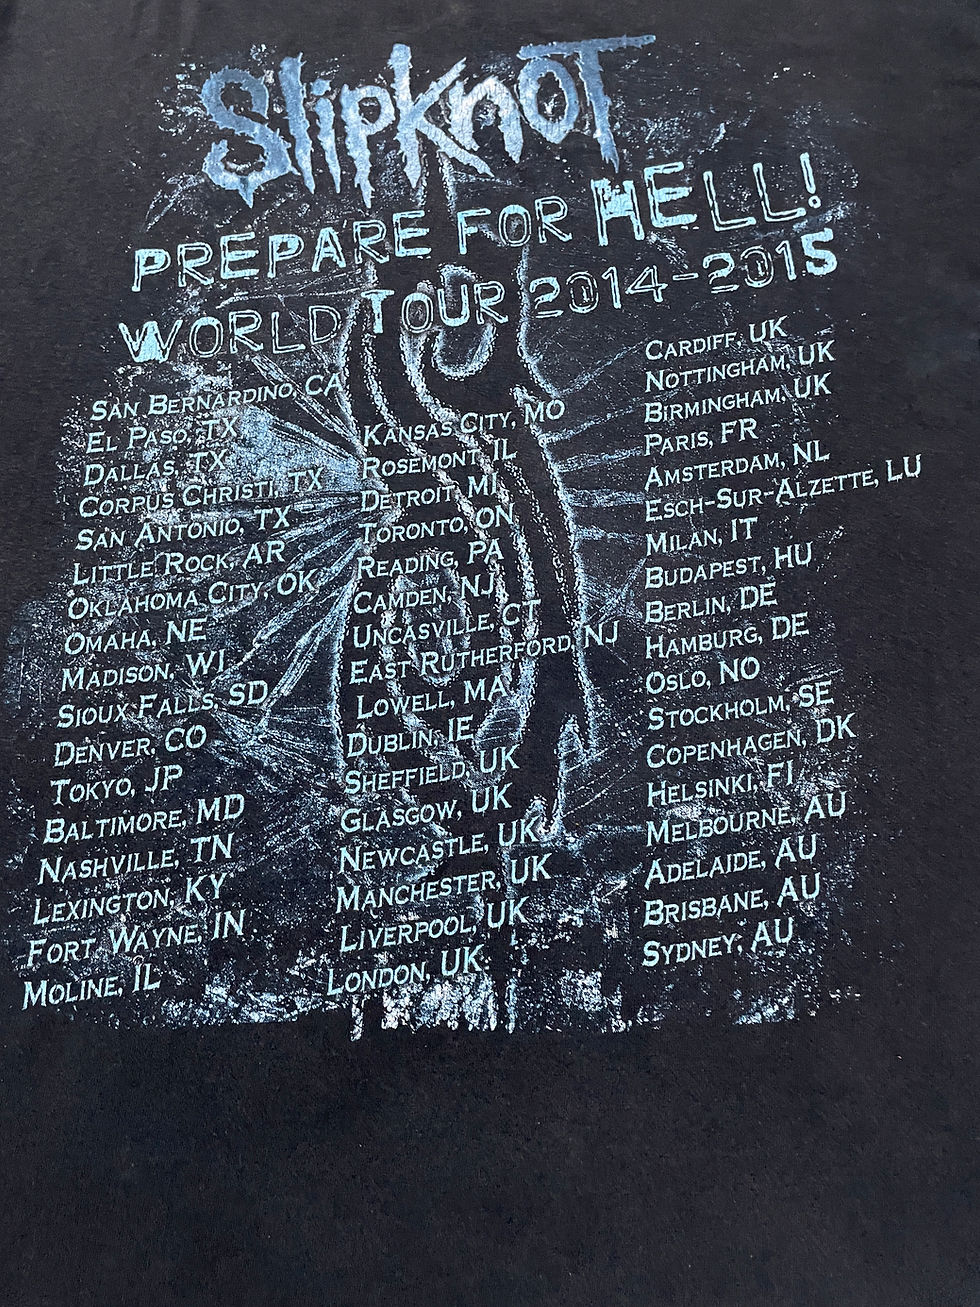 Slipknot
PREPARE FOR HELL!
WORLD TOUR 2014-2015
SAN BERNARDINO, CA
EL PASO, TX
DALLAS, TX
CORPUS CHRISTI, TX
SAN ANTONIO, TX
LITTLE ROCK, AR
OKLAHOMA CITY, OK
OMAHA, NE
MADISON, WI
SIOUX FALLS, SD
DENVER, CO
TOKYO, JP
BALTIMORE, MD
NASHVILLE, TN
LEXINGTON, KY
FORT WAYNE, IN
MOLINE, IL
KANSAS CITY, MO
ROSEMONT, IL
DETROIT, MI
TORONTO, ON
READING, PA
CAMDEN, NJ
UNCASVILLE, CT
EAST RUTHERFORD, NJ
LOWELL, MA
DUBLIN, IE
SHEFFIELD, UK
GLASGOW, UK
NEWCASTLE, UK
MANCHESTER, UK
LIVERPOOL, UK
LONDON, UK
CARDIFF, UK
NOTTINGHAM, UK
BIRMINGHAM, UK
PARIS, FR
AMSTERDAM, NL
ESCH-SUR-ALZETTE, LU
MILAN, IT
BUDAPEST, HU
BERLIN, DE
HAMBURG, DE
OSLO, NO
STOCKHOLM, SE
COPENHAGEN, DK
HELSINKI, FI
MELBOURNE, AU
ADELAIDE, AU
BRISBANE, AU
SYDNEY, AU